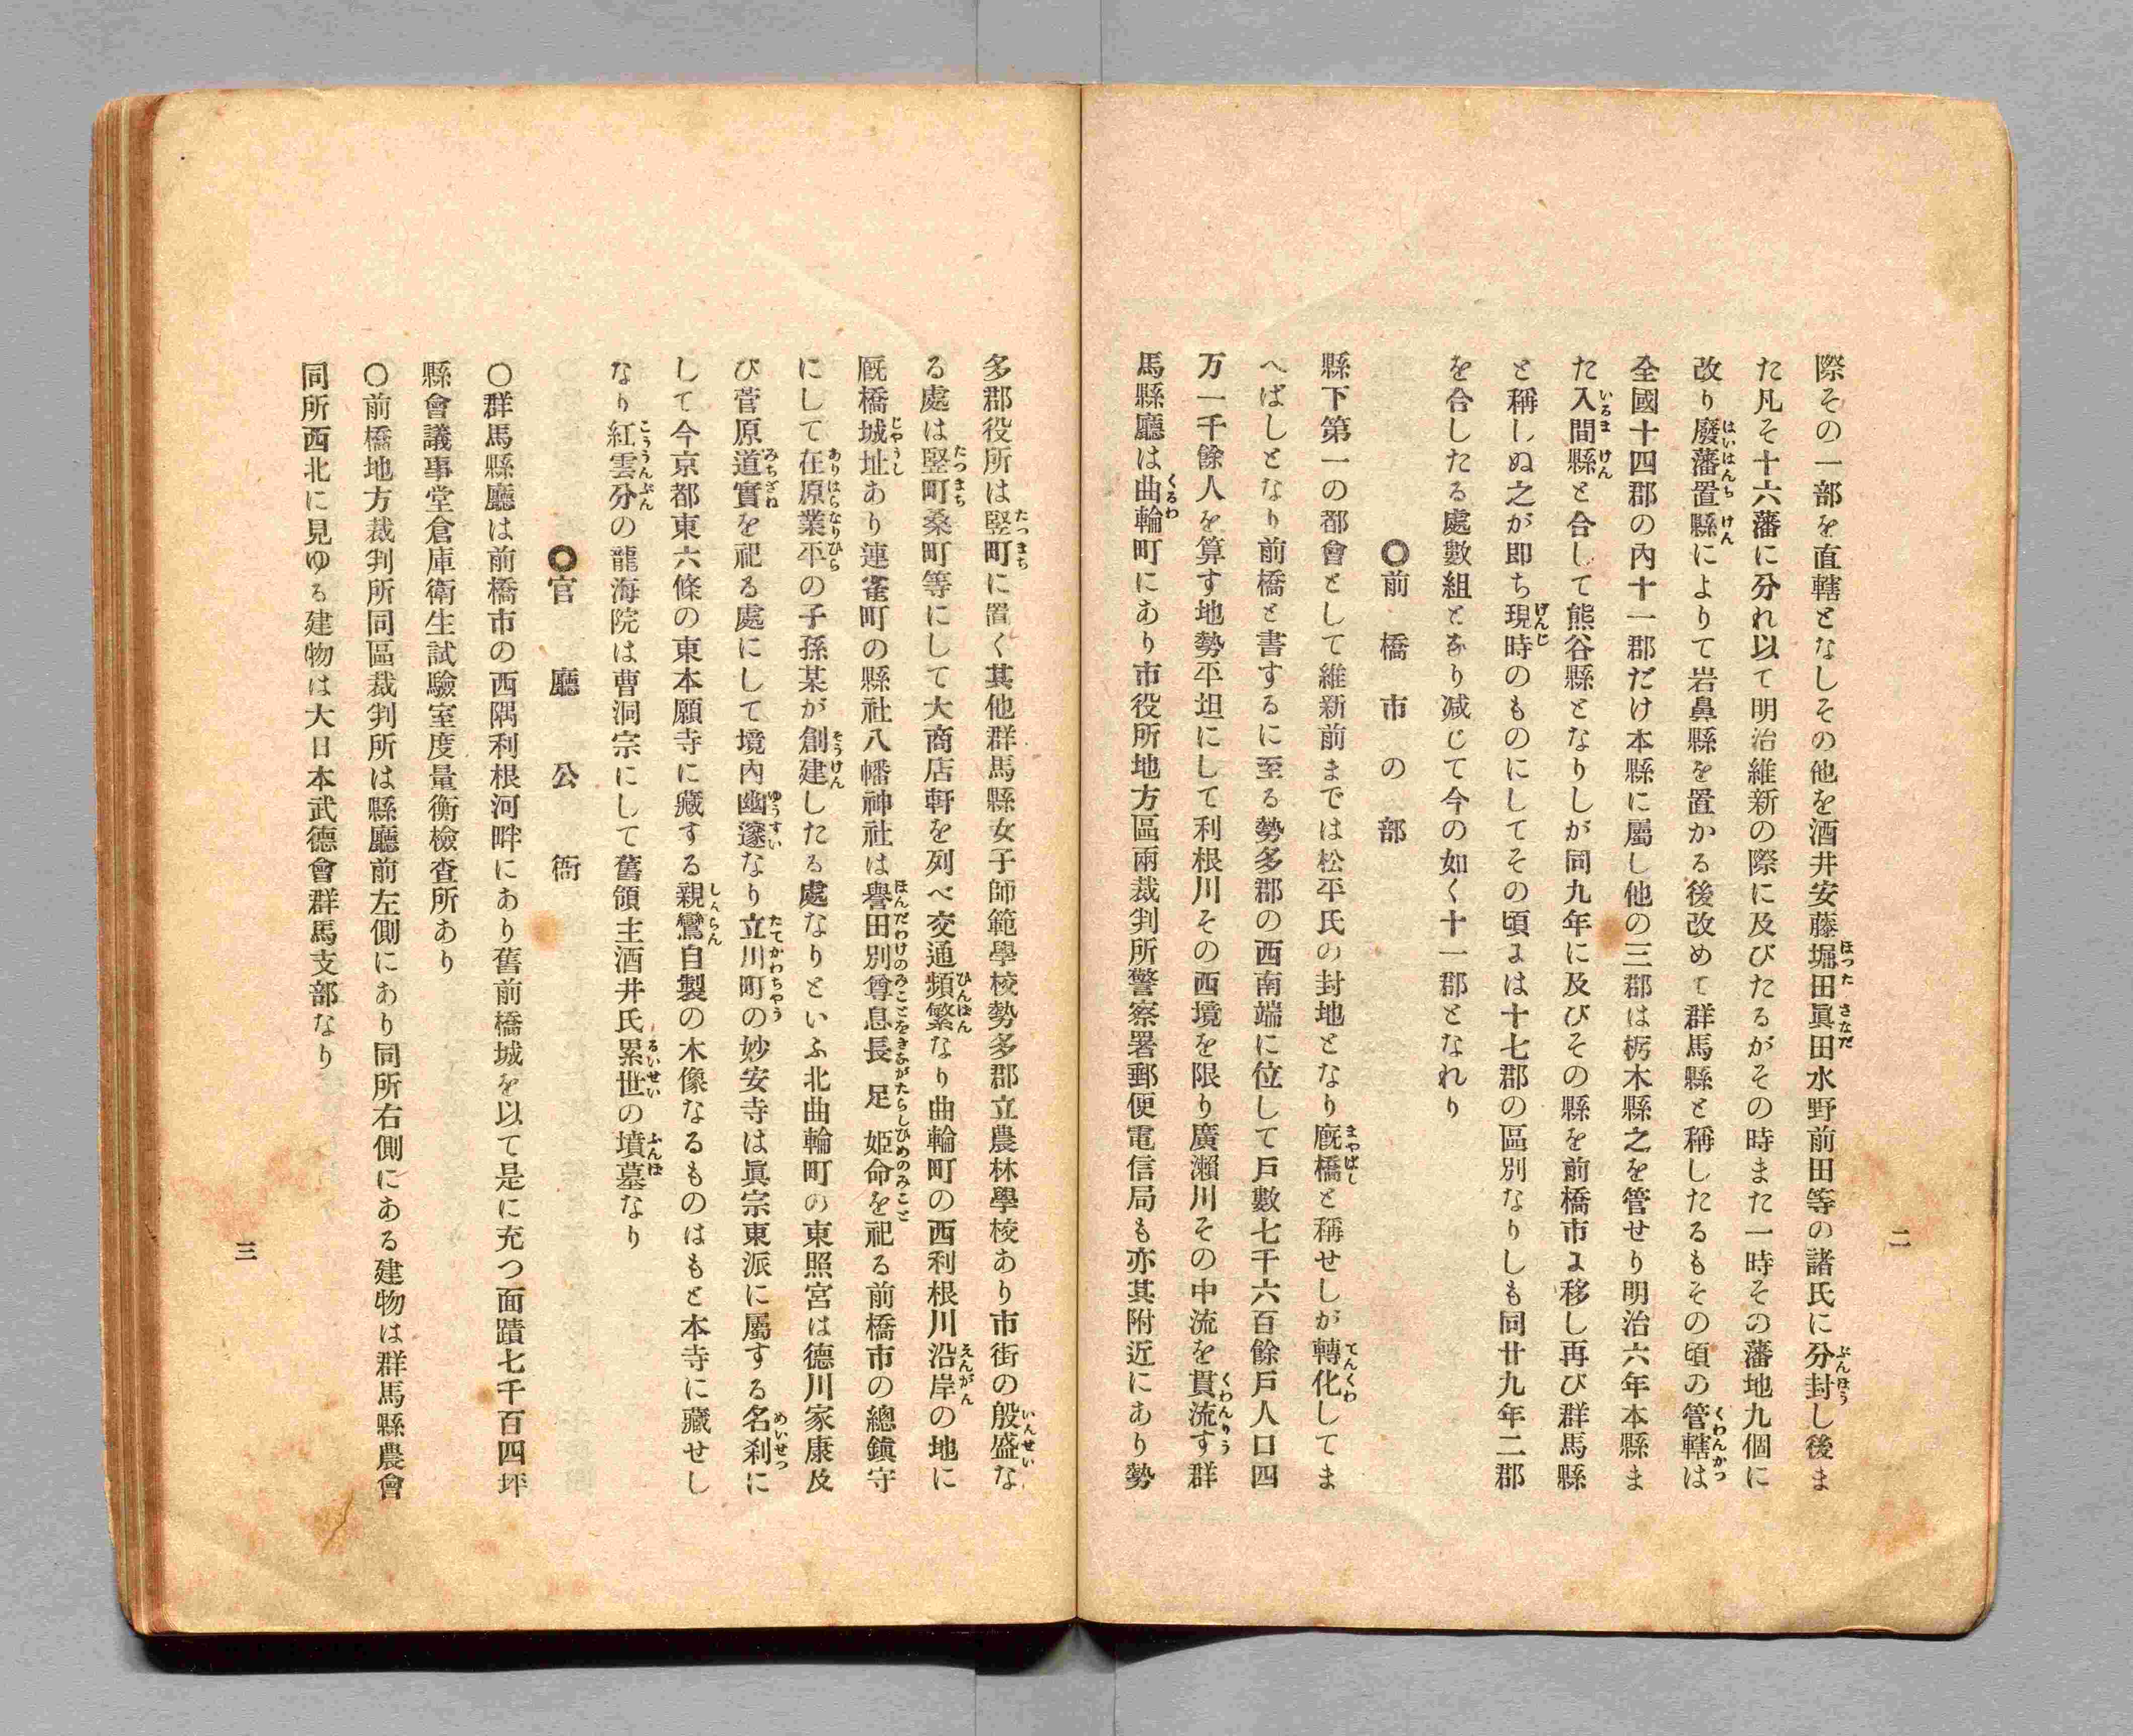 際その一部を直轄となしその他を酒井安藤堀田眞田水野前田等の諸氏に分封し後ま
た凡そ十六藩に分れ以て明治維新の際に及びたるがその時また一時その藩地九個に
改り廢藩置縣によりて岩鼻縣を置かる後改めて群馬縣と稱したるもその頃の管轄は
全國十四郡の內十一郡だけ本縣に屬し他の三郡は栃木縣之を管せり明治六年本縣ま
た入間縣と合して熊谷縣となりしが同九年に及びその縣を前橋市に移し再び群馬縣
と稱しぬ之が即ち現時のものにしてその頃には十七郡の區別なりしも同廿九年二郡
を合したる處數組となり减じて今の如く十一郡となれり
◎前橋市の部
縣下第一の都會として維新前までは松平氏の封地となり廐橋と稱せしが轉化してま
へばしとなり前橋と書するに至る勢多郡の西南端に位して戶數七千六百餘戶人口四
万一千餘人を算す地勢平坦にして利根川その西境を限り廣瀨川その中流を貫流す群
馬縣廳は曲輪町にあり市役所地方區兩裁判所警察署郵便電信局も亦其附近にあり勢
二
多郡役所は竪町に置く其他群馬縣女子師範學校勢多郡立農林學校あり市街の殷盛な
る處は竪町桑町等にして大商店軒を列べ交通頻繁なり曲輪町の西利根川沿岸の地に
厩橋城址あり連雀町の縣社八幡神社は譽田別尊息長足姬命を祀る前橋市の總鎭守
にして在原業平の子孫某が創建したる處なりといふ北曲輪町の東照宮は德川家康及
び菅原道實を祀る處にして境內幽邃なり立川町の妙安寺は眞宗東派に屬する名刹に
して今京都東六條の東本願寺に藏する親鸞自製の木像なるものはもと本寺に藏せし
なり紅雲分の龍海院は曹洞宗にして舊領主酒井氏累世の墳墓なり
◎官廳公衙
〇群馬縣廳は前橋市の西隅利根河畔にあり舊前橋城を以て是に充つ面蹟七千百四坪
縣會議事堂倉庫衛生試驗室度量衡檢査所あり
〇前橋地方裁判所同區裁判所は縣廳前左側にあり同所右側にある建物は群馬縣農會
同所西北に見ゆる建物は大日本武德會群馬支部なり
三